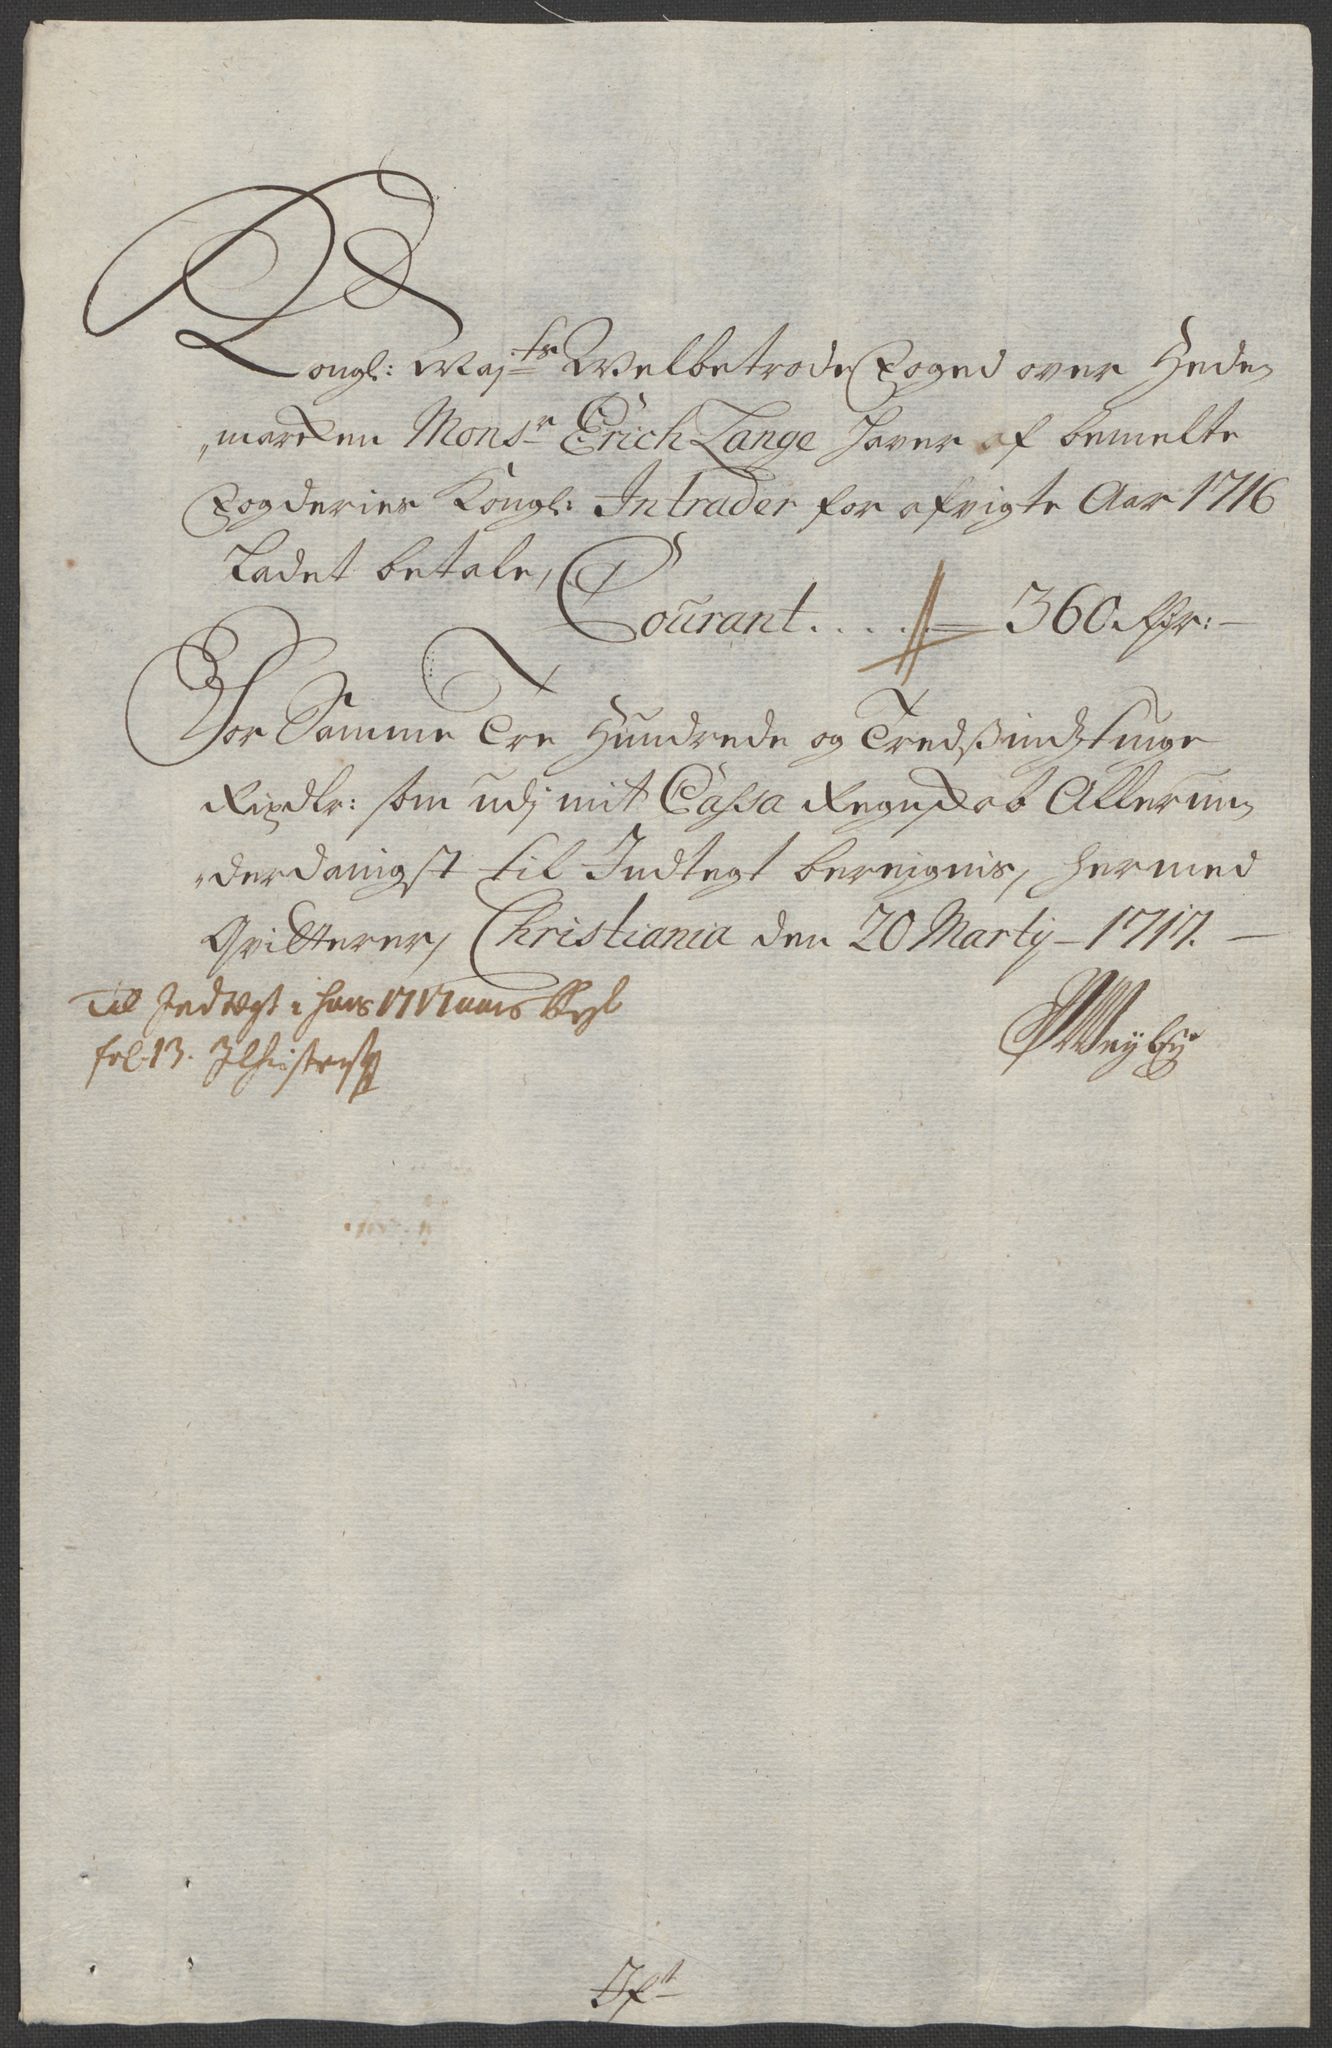 Kongl: Maj:ts Welbetrode Foged over Hede„
„marcken Monsr Erich Lange hafver af bemelte
Fogderies Kongl: Intrader for afvigte Aar 1716
Ladet betale,
Courant . . . . . = 360 Rdr: —
For Samme Tre Hundrede og Tredsindztiuge
Rixdlr: som udj mit Cassa Regnskab Allerun„
„derdanigst til Indtegt bereignis, hermed
Qvitterer, Christiania den 20 Martij — 1717. —
Til Indtegt i hans 1717 aars
fol. 13.